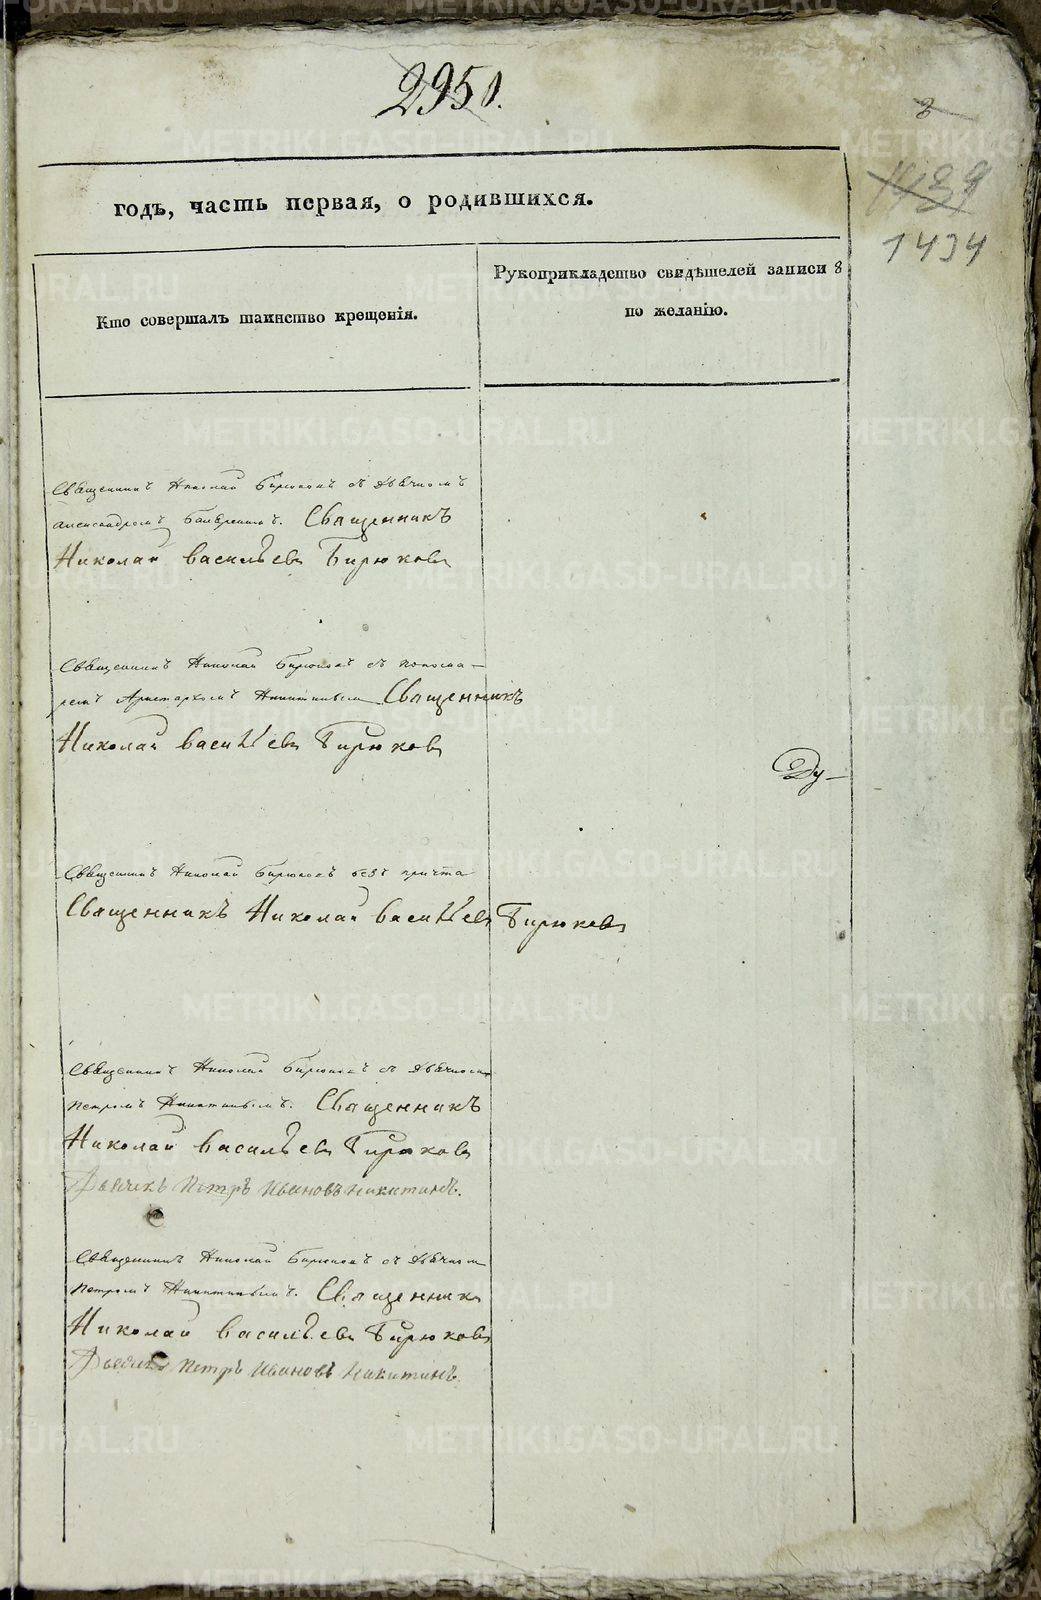 2950.
3
1439
1434
годъ, часть первая, о родившихся.
Кто совершалъ таинство крещенія.
Рукоприкладство свидѣтелей записи
по желанію.
8
Священникъ Николай Бирюковъ съ дьячкомъ
Александромъ Священникъ
Николай Васильевъ Бирюковъ
Священникъ Николай Бирюковъ съ понома-
ремъ Аристархомъ Никитинымъ Священникъ
Николай Васильевъ Бирюковъ
Ду-
Священникъ Николай Бирюковъ безъ причта
Священникъ Николай Васильевъ Бирюковъ
Священникъ Николай Бирюковъ съ дьячкомъ
Петромъ Никитинымъ. Священникъ
Николай Васильевъ Бирюковъ
Дьячекъ Петръ Ивановъ Никитинъ.
Священникъ Николай Бирюковъ съ дьячкомъ
Петромъ Никитинымъ. Священникъ
Николай Васильевъ Бирюковъ
Дьячекъ Петръ Ивановъ Никитинъ.
METRIKI.GASO-URAL.RU